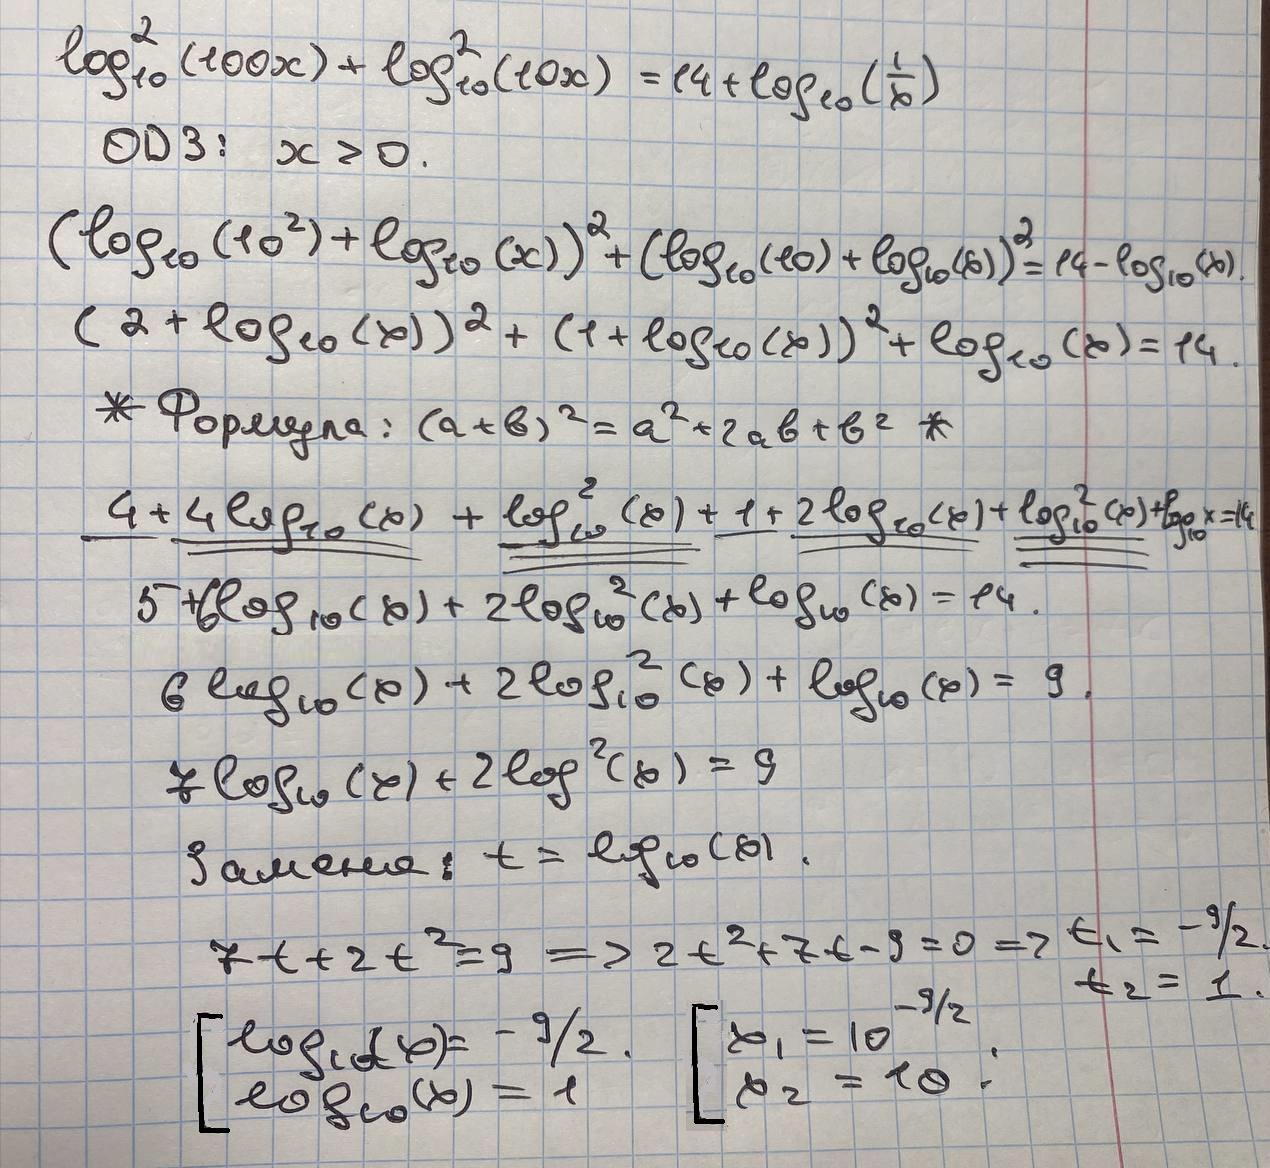 log₁₀²(100x) + log₁₀²(10x) = 14 + log₁₀(1/x)
ОДЗ: x > 0.
(log₁₀(10²) + log₁₀(x))² + (log₁₀(10) + log₁₀(x))² = 14 - log₁₀(x).
(2 + log₁₀(x))² + (1 + log₁₀(x))² + log₁₀(x) = 14.
* Формула: (a + b)² = a² + 2ab + b² *
4 + 4log₁₀(x) + log₁₀²(x) + 1 + 2log₁₀(x) + log₁₀²(x) + log₁₀x = 14
5 + 6log₁₀(x) + 2log₁₀²(x) + log₁₀(x) = 14.
6log₁₀(x) + 2log₁₀²(x) + log₁₀(x) = 9.
7log₁₀(x) + 2log²(x) = 9
Замена: t = log₁₀(x).
7t + 2t² = 9 => 2t² + 7t - 9 = 0 => t₁ = -9/2.
t₂ = 1.
[ log₁₀(x) = -9/2. [ x₁ = 10^(-9/2)
log₁₀(x) = 1 x₂ = 10 ;